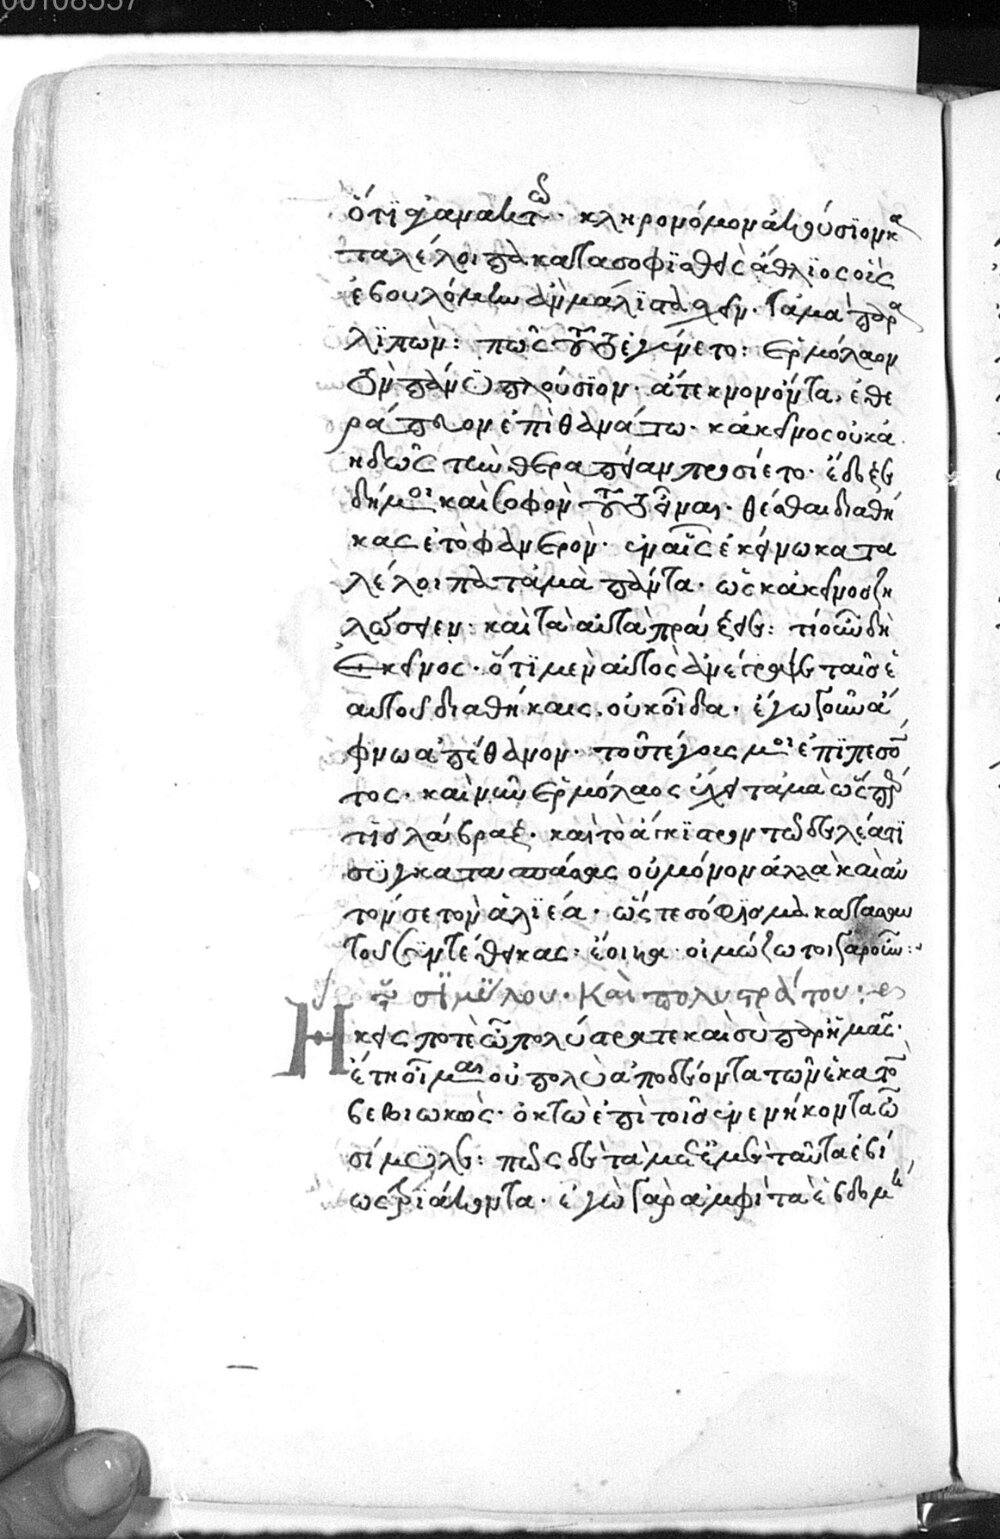 ὅτι ἀγανακτῶ· κληρονόμον ἀκούσιον κα
ταλέλοιπα κατασοφισθεὶς ἄθλιος οὓς
ἐβουλόμην ἂν μάλιστα σχεῖν· τἀμὰ παρα
λιπών: πῶς τοῦτο ἐγένετο: ἑρμόλαον
τὸν πάνυ πλούσιον· ἄτεκνον ὄντα, ἐθε
ράπευον ἐπὶ θανάτω· κἀκεῖνος οὐκ ἀ
ηδῶς τὴν θεραπείαν προσίετο· ἔδοξε
δή μοι καὶ σοφὸν τοῦτο εἶναι· θέσθαι διαθή
κας ἐς τὸ φανερὸν· ἐν αἷς ἐκείνω κατα
λέλοιπα τἀμὰ πάντα· ὡς κἀκεῖνος ζη
λώσειεν· καὶ τὰ αὐτὰ πράξειε: τί οὖν δὴ
ἐκεῖνος· ὅτι μὲν αὐτὸς ἀνέγραψε ταῖς ἑ
αυτοῦ διαθήκαις, οὐκ οἶδα· ἐγὼ γοῦν ἄ
φνω ἀπέθανον· τοῦ τέγους μοι ἐπιπεσόν
τος· καὶ νῦν ἑρμόλαος ἔχει τἀμὰ ὥσπερ
τις λάβραξ· καὶ τὸ ἄγκιστρον τῶ δελέατι
συγκατασπάσας οὐ μόνον ἀλλὰ καὶ αὐ
τόν σε τὸν ἁλιέα· ὥστε σόφισμα κατὰ σαυ
τοῦ συντέθεικας· ἔοικα· οἰμώζω τοιγαροῦν:
σιμύλου· καὶ πολυστράτου:
Ἥκεις ποτὲ ὦ πολύστρατε καὶ σὺ παρ' ἡμᾶς·
ἔτη οἶμαι οὐ πολὺ ἀποδέοντα τῶν ἑκατὸν
βεβιωκὼς· ὀκτὼ ἐπὶ τοῖς ἐνενήκοντα ὦ
σίμυλε: πῶς δὲ τὰ μετ' ἐμὲ ταῦτα ἐβί
ως τριάκοντα· ἐγὼ γὰρ ἀμφὶ τὰ ἑβδομή